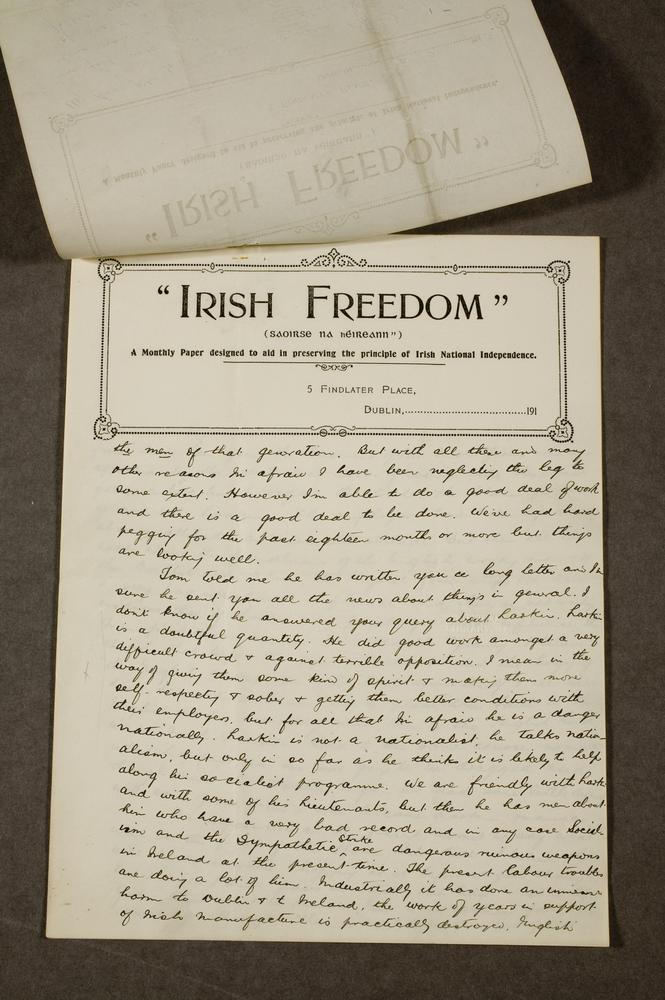 "IRISH FREEDOM"
(SAOIRSE NA hÉIREANN")
A Monthly Paper designed to aid in preserving the principle of Irish National Independence.
5 FINDLATER PLACE,
DUBLIN,..............................191
the men of that generation. But with all these and many
other reasons I'm afraid I have been neglecting the leg to
some extent. However I'm able to do a good deal of work
and there is a good deal to be done. We've had hard
pegging for the past eighteen months or more but things
are looking well.
Tom told me he has written you a long letter and I'm
sure he sent you all the news about things in general. I
don't know if he answered your query about Larkin. Larkin
is a doubtful quantity. He did good work amongst a very
difficult crowd & against terrible opposition. I mean in the
way of giving them some kind of spirit & making them more
self-respecting & sober & getting them better conditions with
their employers, but for all that I'm afraid he is a danger
nationally. Larkin is not a nationalist, he talks nation-
alism, but only in so far as he thinks it is likely to help
along his socialist programme. We are friendly with Lark-
and with some of his lieutenants, but then he has men about
him who have a very bad record and in any case Social-
ism and the Sympathetic Strike are dangerous ruinous weapons
in Ireland at the present time. The present labour troubles
are doing a lot of . Industrially it has done an immense
harm to Dublin & to Ireland, the work of years in support
of Irish manufacture is practically destroyed. English